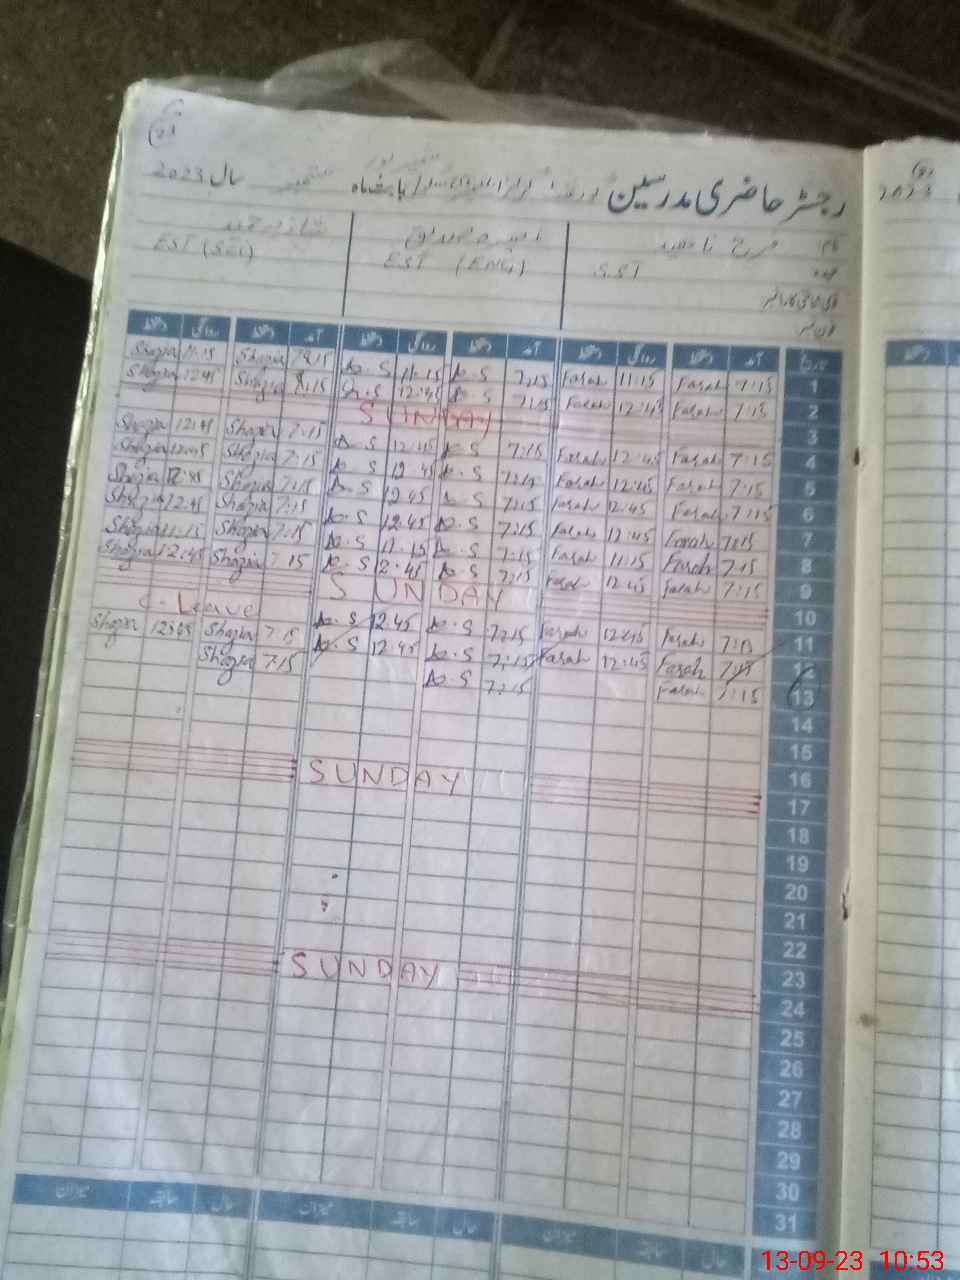 رجسٹر حاضری مدرسین
سال 2023
2023
نام
عہدہ
S.ST
EST (ENG)
EST (SCI)
تاریخ آمد دستخط روانگی دستخط آمد دستخط روانگی دستخط آمد دستخط روانگی دستخط
1 7:15 Farah 11:15 Farah 7:15 A.S 11:15 A.S Shazia 11:15 Shazia
2 7:15 Farah 12:45 Farah 7:15 A.S 12:45 Shazia 12:45 Shazia
3 SUNDAY
4 7:15 Farah 12:45 Farah 7:15 A.S 12:45 A.S 7:15 Shazia 12:45 Shazia
5 7:15 Farah 12:45 Farah 7:15 A.S 12:45 A.S 7:15 Shazia 12:45 Shazia
6 7:15 Farah 12:45 Farah 7:15 A.S 12:45 A.S 7:15 Shazia 12:45 Shazia
7 7:15 Farah 12:45 Farah 7:15 A.S 12:45 A.S 7:15 Shazia 12:45 Shazia
8 7:15 Farah 11:15 Farah 7:15 A.S 11:15 A.S 7:15 Shazia 11:15 Shazia
9 7:15 Farah 12:45 Farah 7:15 A.S 12:45 A.S 7:15 Shazia 12:45 Shazia
10 SUNDAY
11 Farah 12:45 Farah 7:15 A.S 12:45 A.S C-Leave
12 7:15 Farah 12:45 Farah 7:15 A.S 12:45 A.S 7:15 Shazia 12:45 Shazia
13 7:15 Farah 7:15 A.S 7:15 Shazia
14
15
16
17 SUNDAY
18
19
20
21
22
23
24 SUNDAY
25
26
27
28
29
30
31
حال سابقہ میزان حال سابقہ میزان
13-09-23 10:53